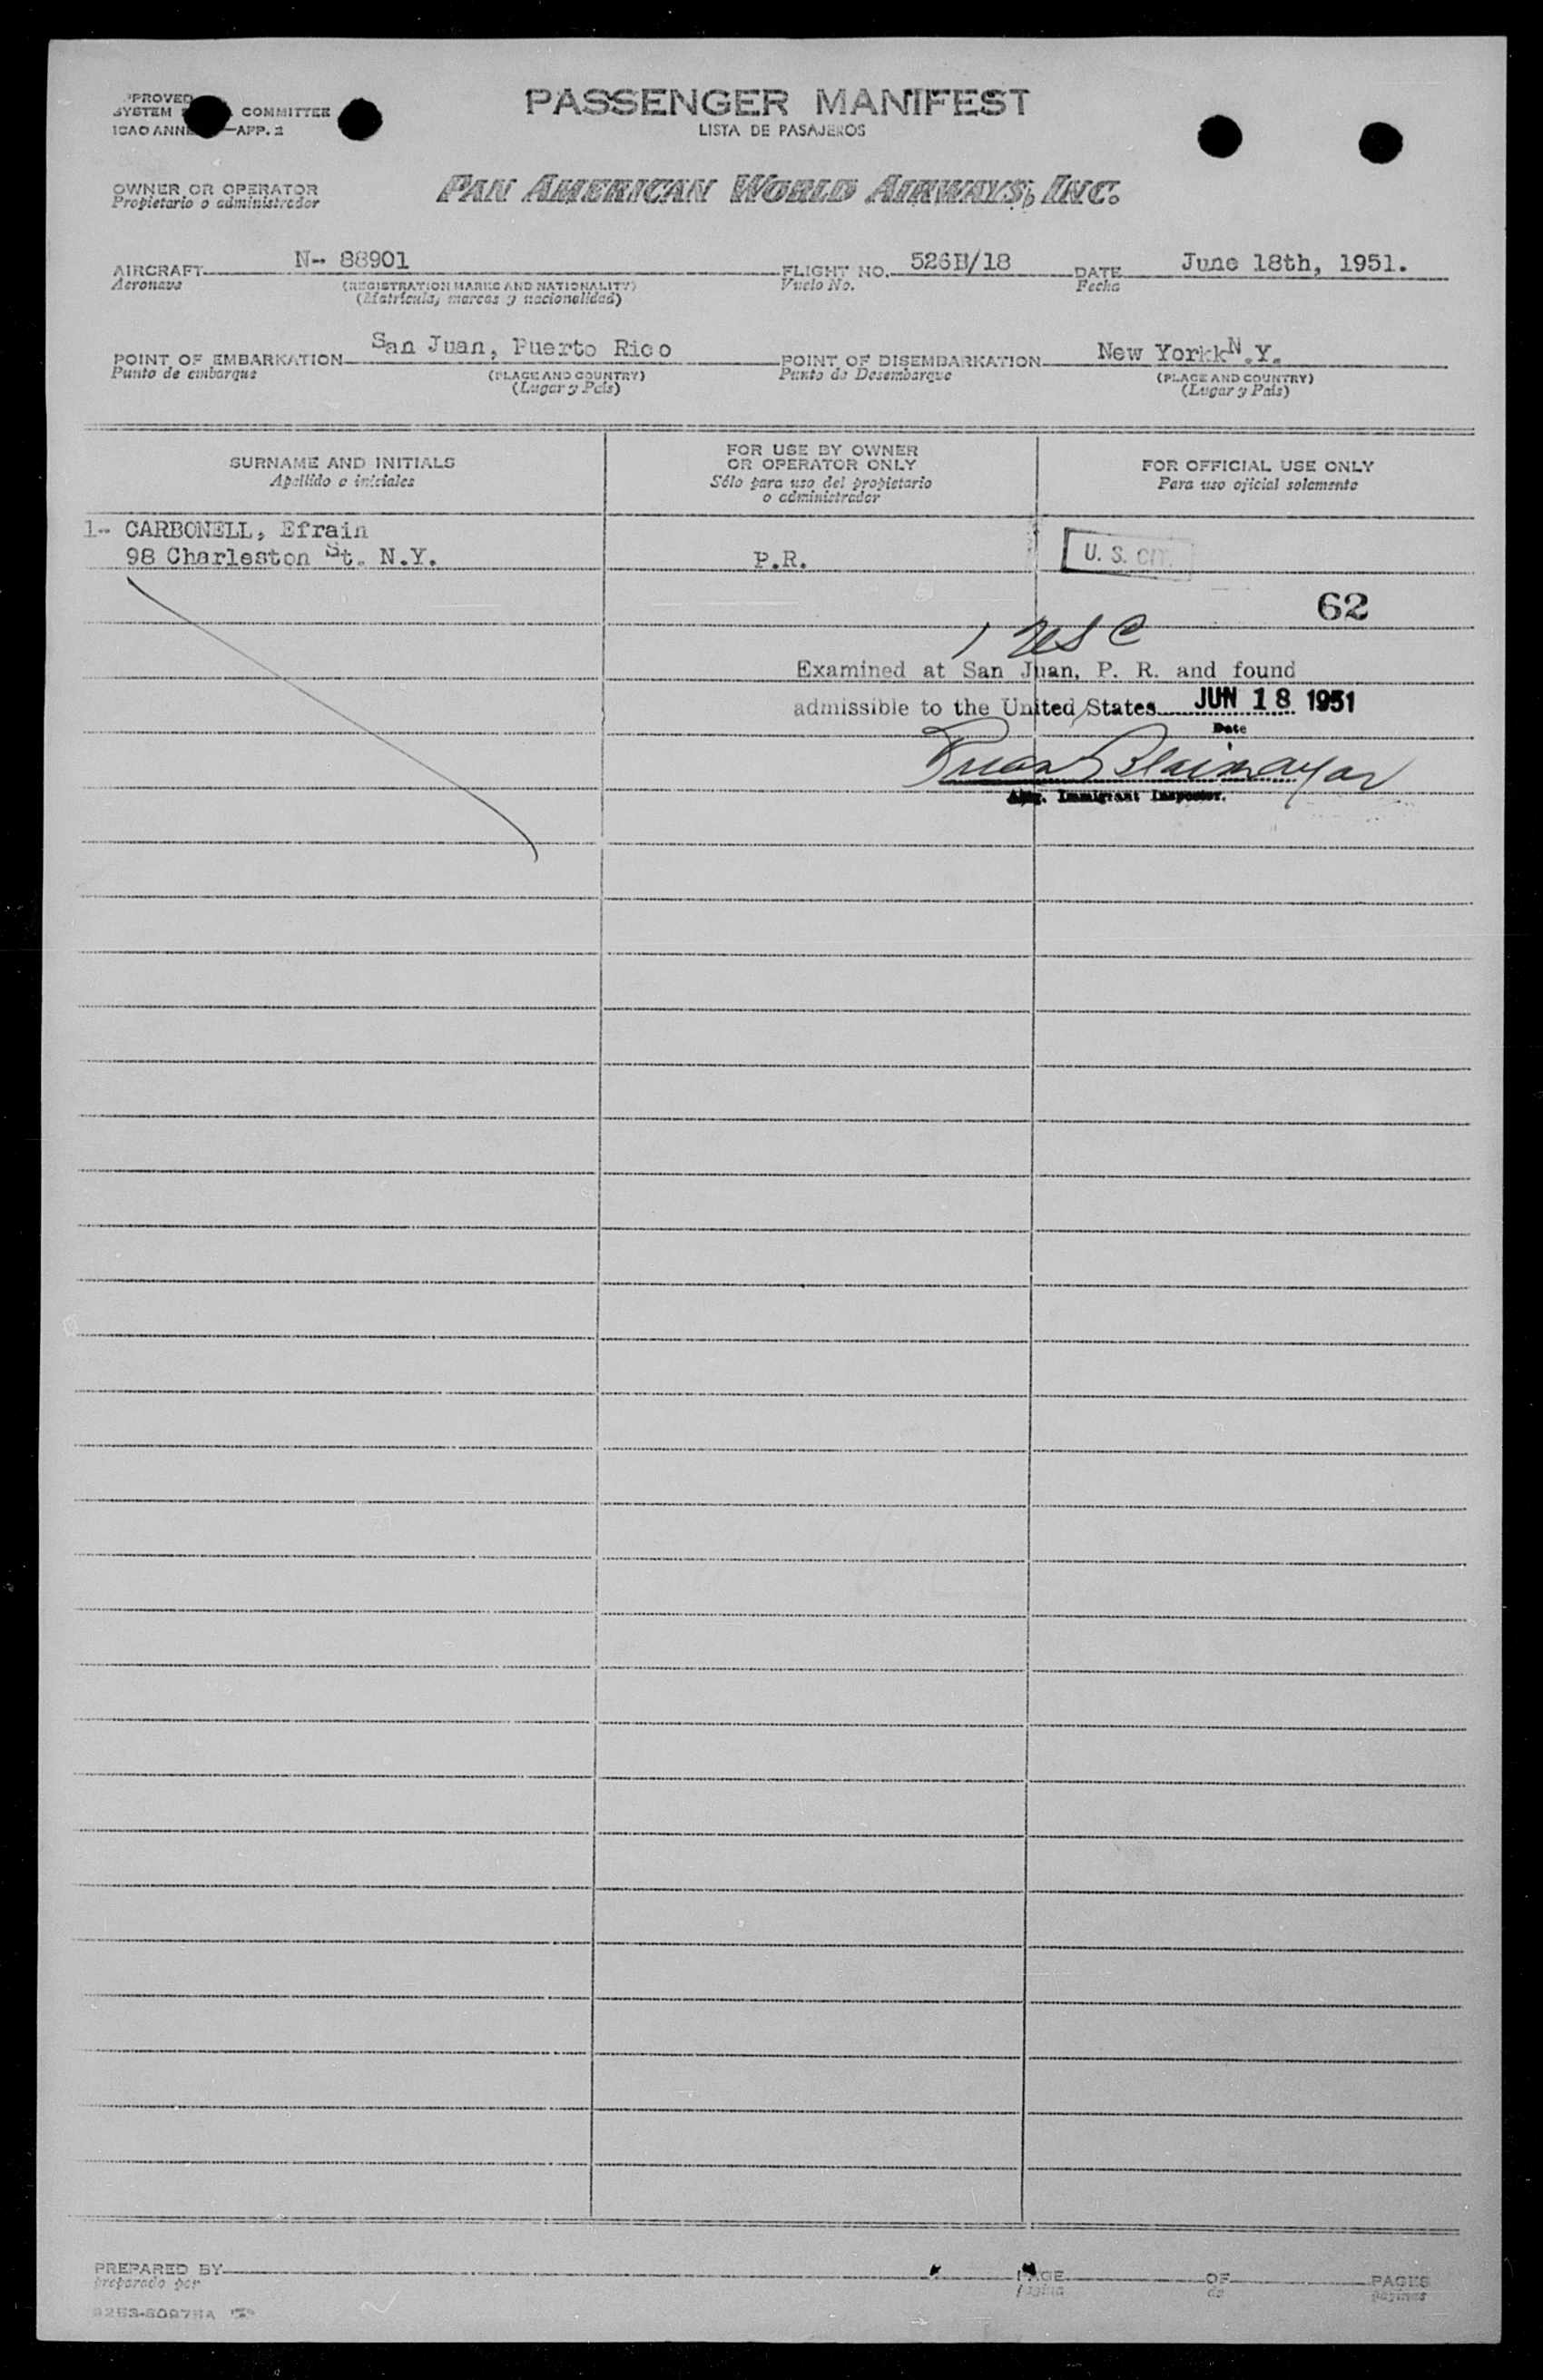 PASSENGER MANIFEST
LISTA DE PASAJEROS
PPROVED
SYSTEM COMMITTEE
ICAO ANNE —APP. 2
OWNER OR OPERATOR
Propietario o administrador
PAN AMERICAN WORLD AIRWAYS, INC.
AIRCRAFT N- 88901 FLIGHT NO. 526B/18 DATE June 18th, 1951.
Aeronave (REGISTRATION MARKS AND NATIONALITY) Vuelo No. Fecha
(Matrícula, marcas y nacionalidad)
POINT OF EMBARKATION San Juan, Puerto Rico POINT OF DISEMBARKATION New Yorkk N.Y.
Punto de embarque (PLACE AND COUNTRY) Punto de Desembarque (PLACE AND COUNTRY)
(Lugar y País) (Lugar y País)
SURNAME AND INITIALS
Apellido e iniciales
FOR USE BY OWNER
OR OPERATOR ONLY
Sólo para uso del propietario
o administrador
FOR OFFICIAL USE ONLY
Para uso oficial solamente
1- CARBONELL, Efrain
98 Charleston St. N.Y. P.R. U. S. CIT.
62
1 USC
Examined at San Juan, P. R. and found
admissible to the United States JUN 18 1951
Date
Immigrant Inspector.
PREPARED BY PAGE OF PAGES
preparado por página de páginas